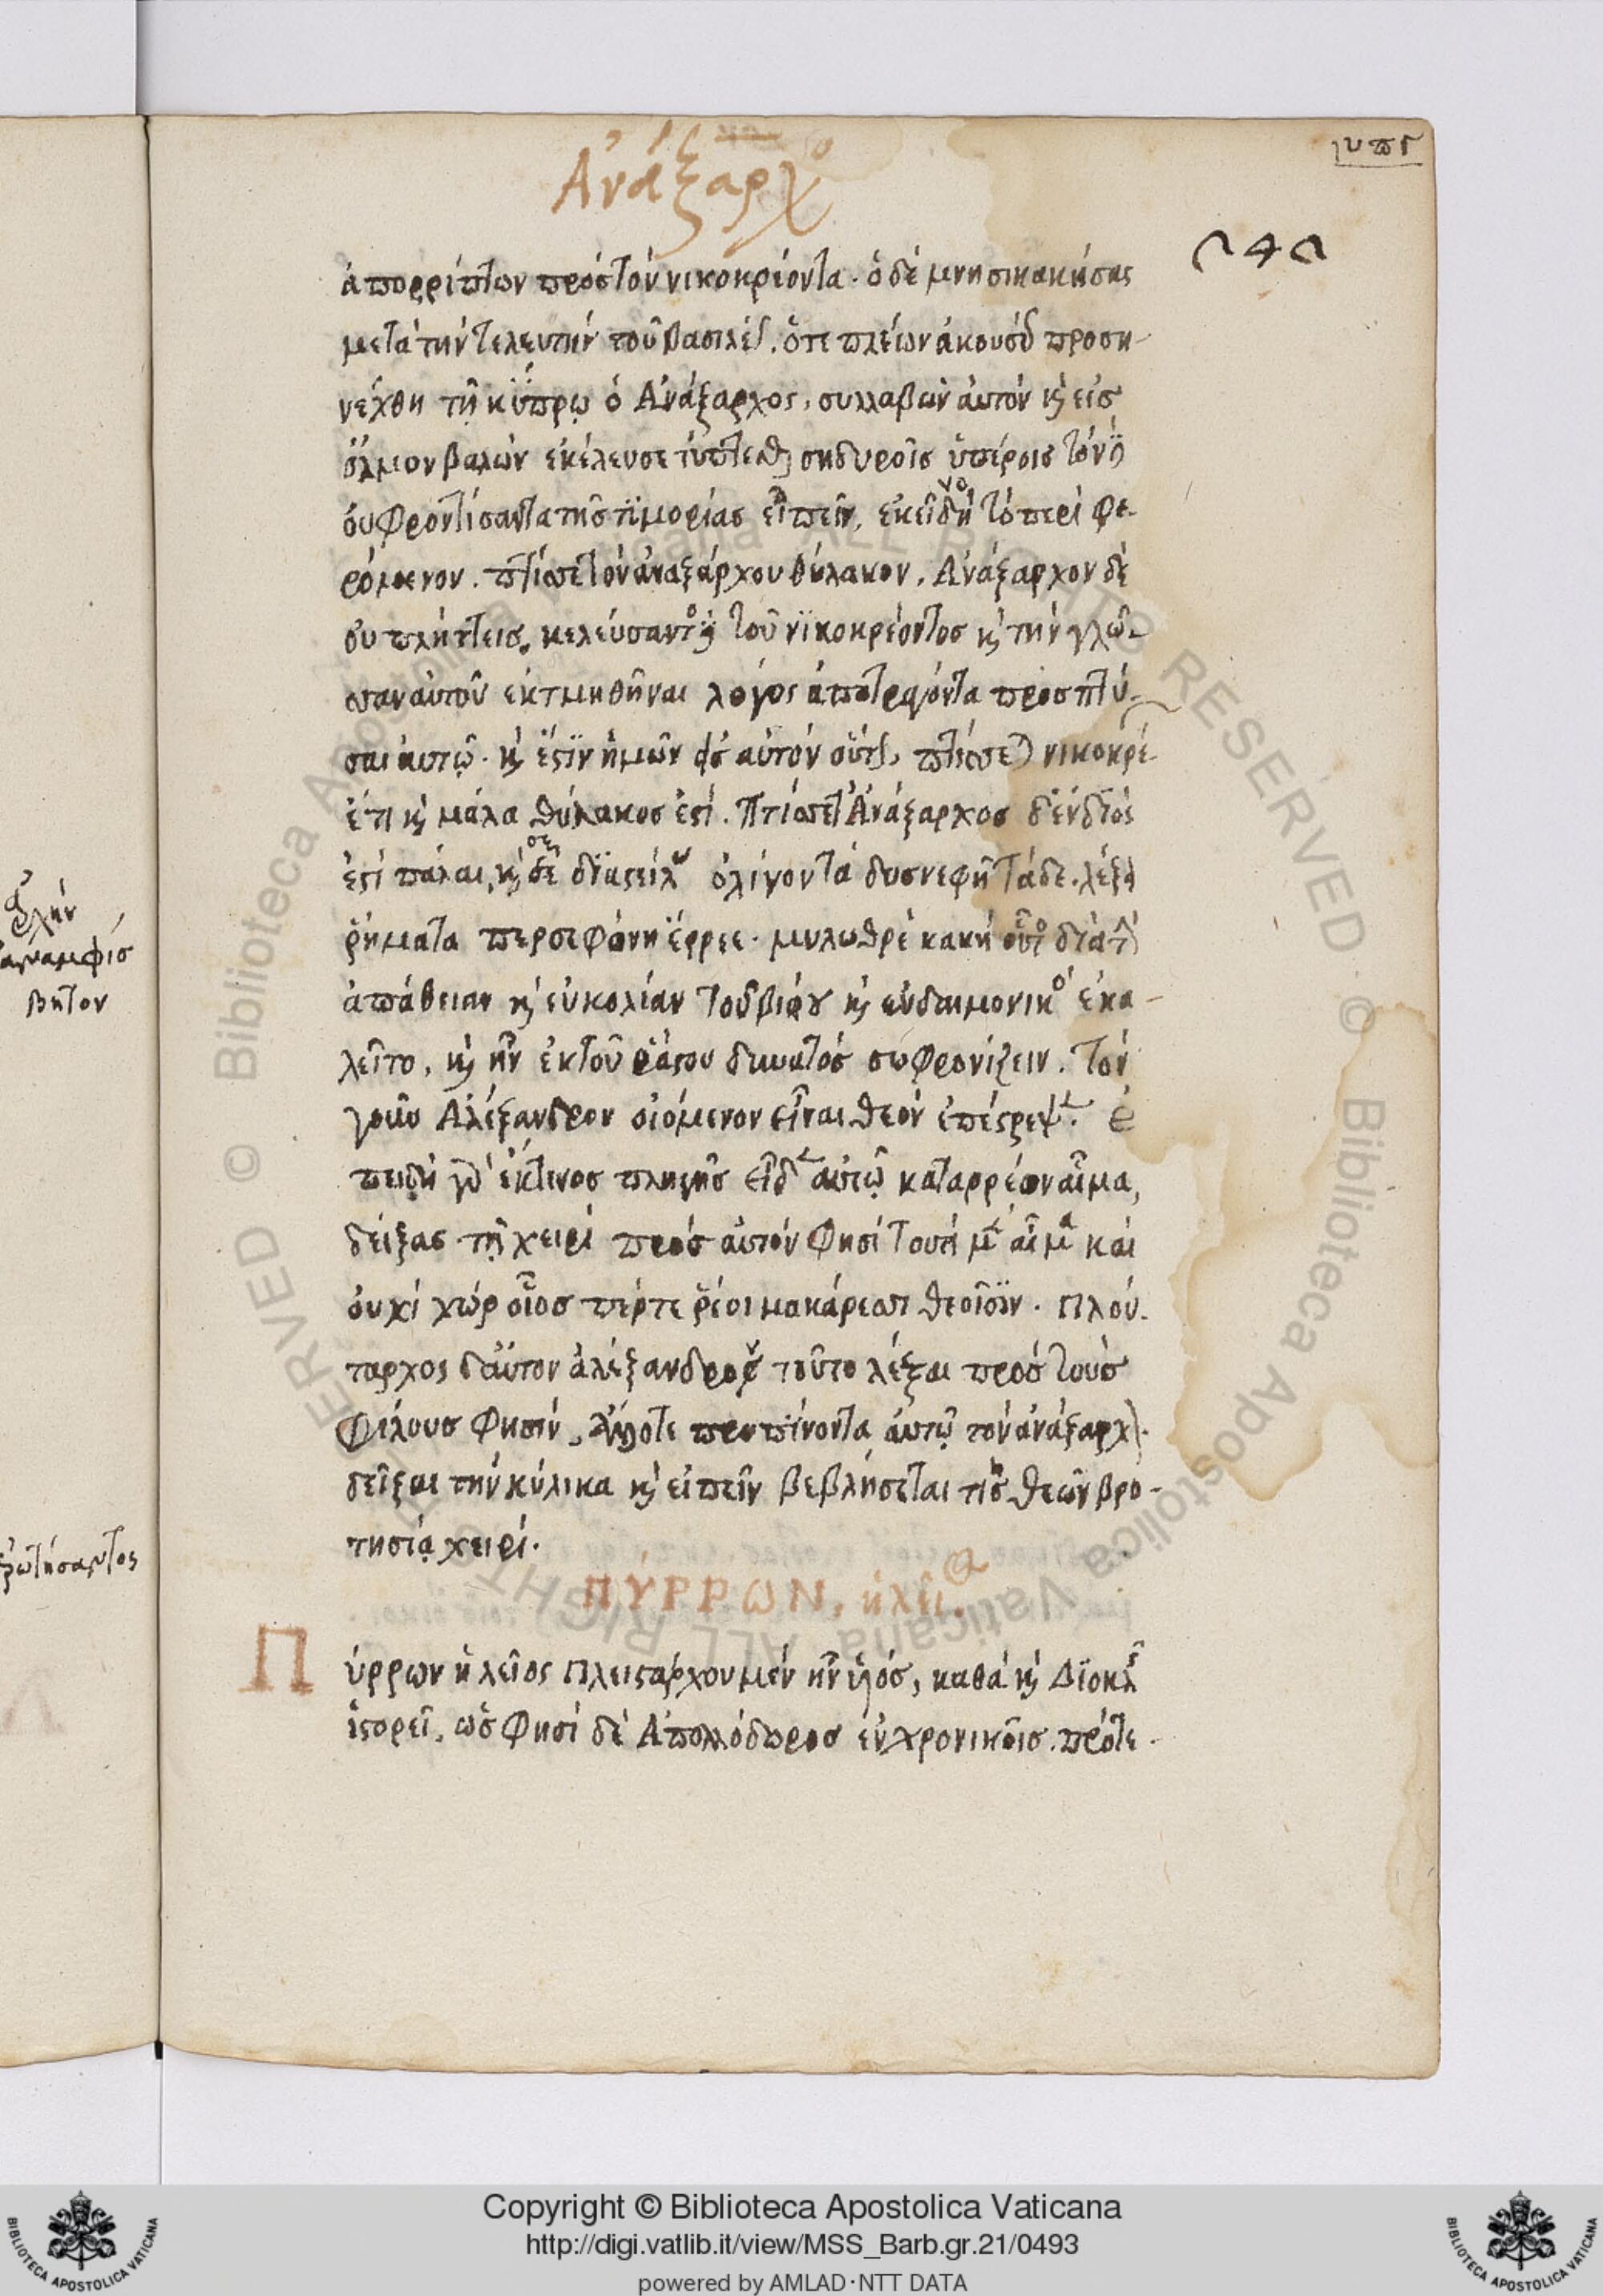 Ἀνάξαρχο
υπγ
ἀπορρίπτων πρὸς τὸν νικοκρέοντα. ὁ δὲ μνησικακήσας
μετὰ τὴν τελευτὴν τοῦ βασιλέ. ὅτε πλέων ἀκουσ προση-
νέχθη τῇ κύπρῳ ὁ Ἀνάξαρχος, συλλαβὼν αὐτὸν κ εἰς
ὅλμον βαλὼν ἐκέλευσε τύπτεσθ σηδυροῖς ὑπέροις τὸν δ
οὐ φροντίσαντα τῆς τϊμορίας εἰπεῖν, ἐκεῖνο δὴ τὸ περὶ φε-
ρόμενον. πτίσσε τὸν ἀναξάρχου θύλακον, Ἀνάξαρχον δὲ
οὐ πλήττεις. κελεύσαντο δ τοῦ νϊκοκρέοντος κ τὴν γλῶ-
τταν αὐτοῦ ἐκτμηθῆναι λόγος ἀποτραγόντα προσπτύ-
σαι αὐτῷ. κ ἔστϊν ἡμῶν εἰς αὐτὸν οὕτ, πτίσσετε νικοκρέ
ἔτι κ μάλα θύλακος ἐστί. Πτίσσετ Ἀνάξαρχος δ' ἐν διὸς
ἐστὶ πάλαι, κ σὲ δϊαστείλ ὀλίγον τὰ δυσνεφῆ τάδε. λέξ
ῥήματα περσεφόνη ἔρρεε. μυλωθρὲ κακή οὗτο διὰ τ
ἀπάθειαν κ εὐκολίαν τοῦ βίου κ εὐδαιμονικὸ ἐκα-
λεῖτο, κ ἦν ἐκ τοῦ ῥάστου δυνατὸς σωφρονίζειν. τὸν
γοῦν Ἀλέξανδρον οἰόμενον εἶναι θεὸν ἐπέστρεψε. ἐ
πειδὴ γ ἔκ τινος πληγῆς εἶδ αὐτῷ καταρρέον αἷμα,
δείξας τῇ χειρὶ πρὸς αὐτὸν φησί τουτὶ μ αἷμα καὶ
οὐχὶ χώρ οἷος πέρ τε ῥέει μακάρεσσι θεοῖσϊν. Πλού-
ταρχος δ' αὐτὸν ἀλέξανδρον τοῦτο λέξαι πρὸς τοὺς
φίλους φησίν, ἄλλοτε προπίνοντα αὐτῷ τὸν ἀνάξαρχ.
δεῖξαι τὴν κύλικα κ εἰπεῖν βεβλήσεται τις θεῶν βρο-
τησίᾳ χειρί.
ΠΥΡΡΩΝ, ἠλεῖ.
Πύρρων ἠλεῖος Πλειστάρχου μὲν ἦν ὑιός, καθὰ κ Δϊοκλ
ἱστορεῖ, ὥς φησι δὲ Ἀπολλόδωρος ἐν χρονικοῖς. πρότε-
βητον
ἐρωτήσαντος
Copyright © Biblioteca Apostolica Vaticana
http://digi.vatlib.it/view/MSS_Barb.gr.21/0493
powered by AMLAD·NTT DATA
BIBLIOTECA APOSTOLICA VATICANA
BIBLIOTECA APOSTOLICA VATICANA